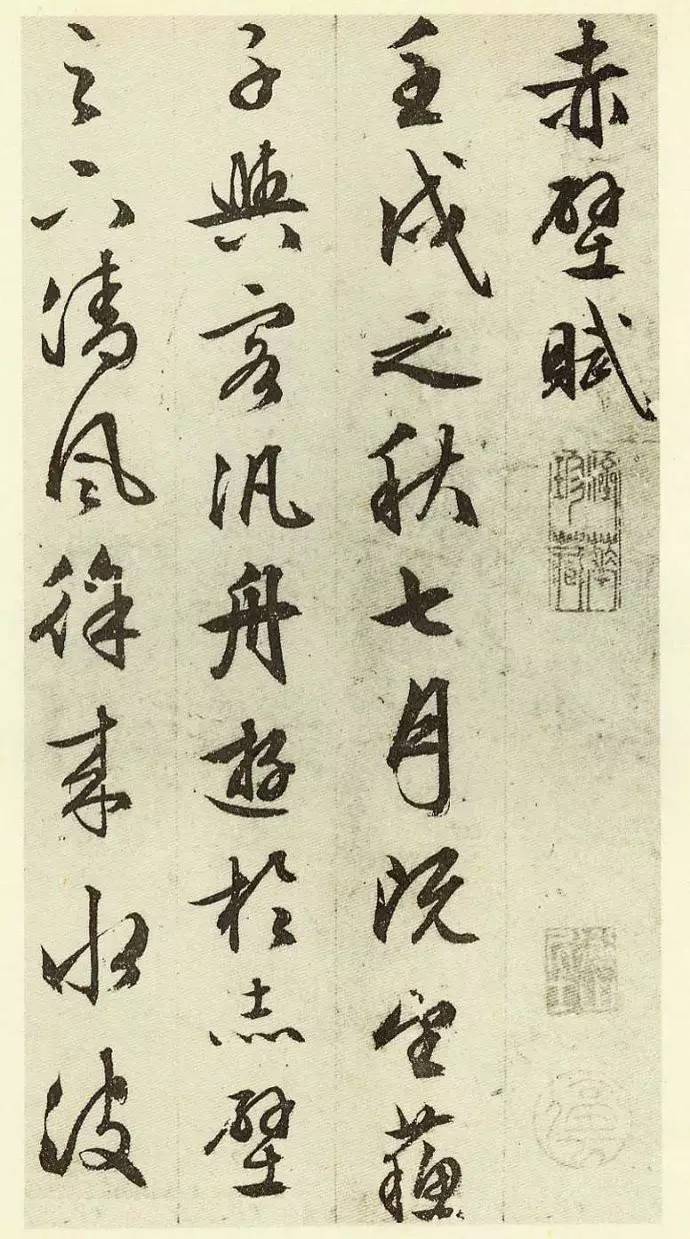 赤壁賦
壬戌之秋七月既望蘓
子與客汎舟遊於赤壁
之下清風徐来水波